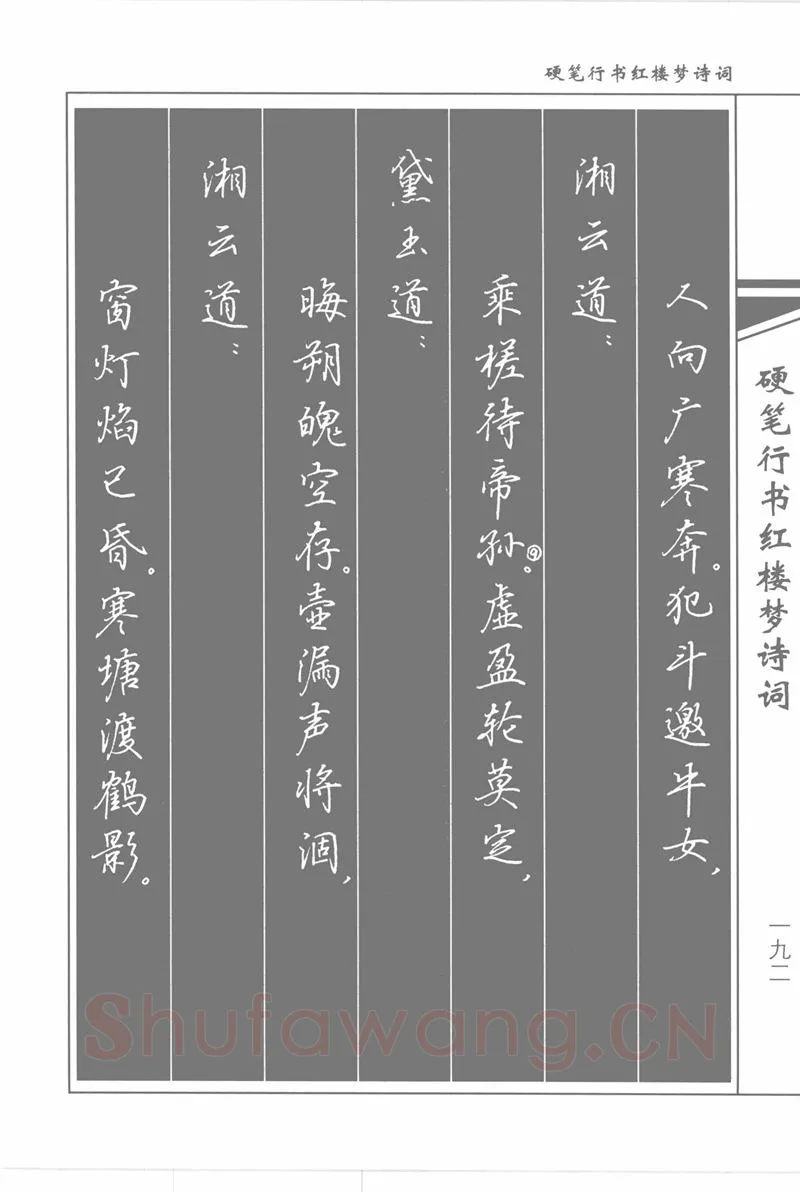 硬笔行书红楼梦诗词
人向广寒奔。犯斗邀牛女，
湘云道：
乘槎待帝孙⑨。虚盈轮莫定，
黛玉道：
晦朔魄空存。壶漏声将涸，
湘云道：
窗灯焰已昏。寒塘渡鹤影。
硬笔行书红楼梦诗词
一九二
Shufawang.CN